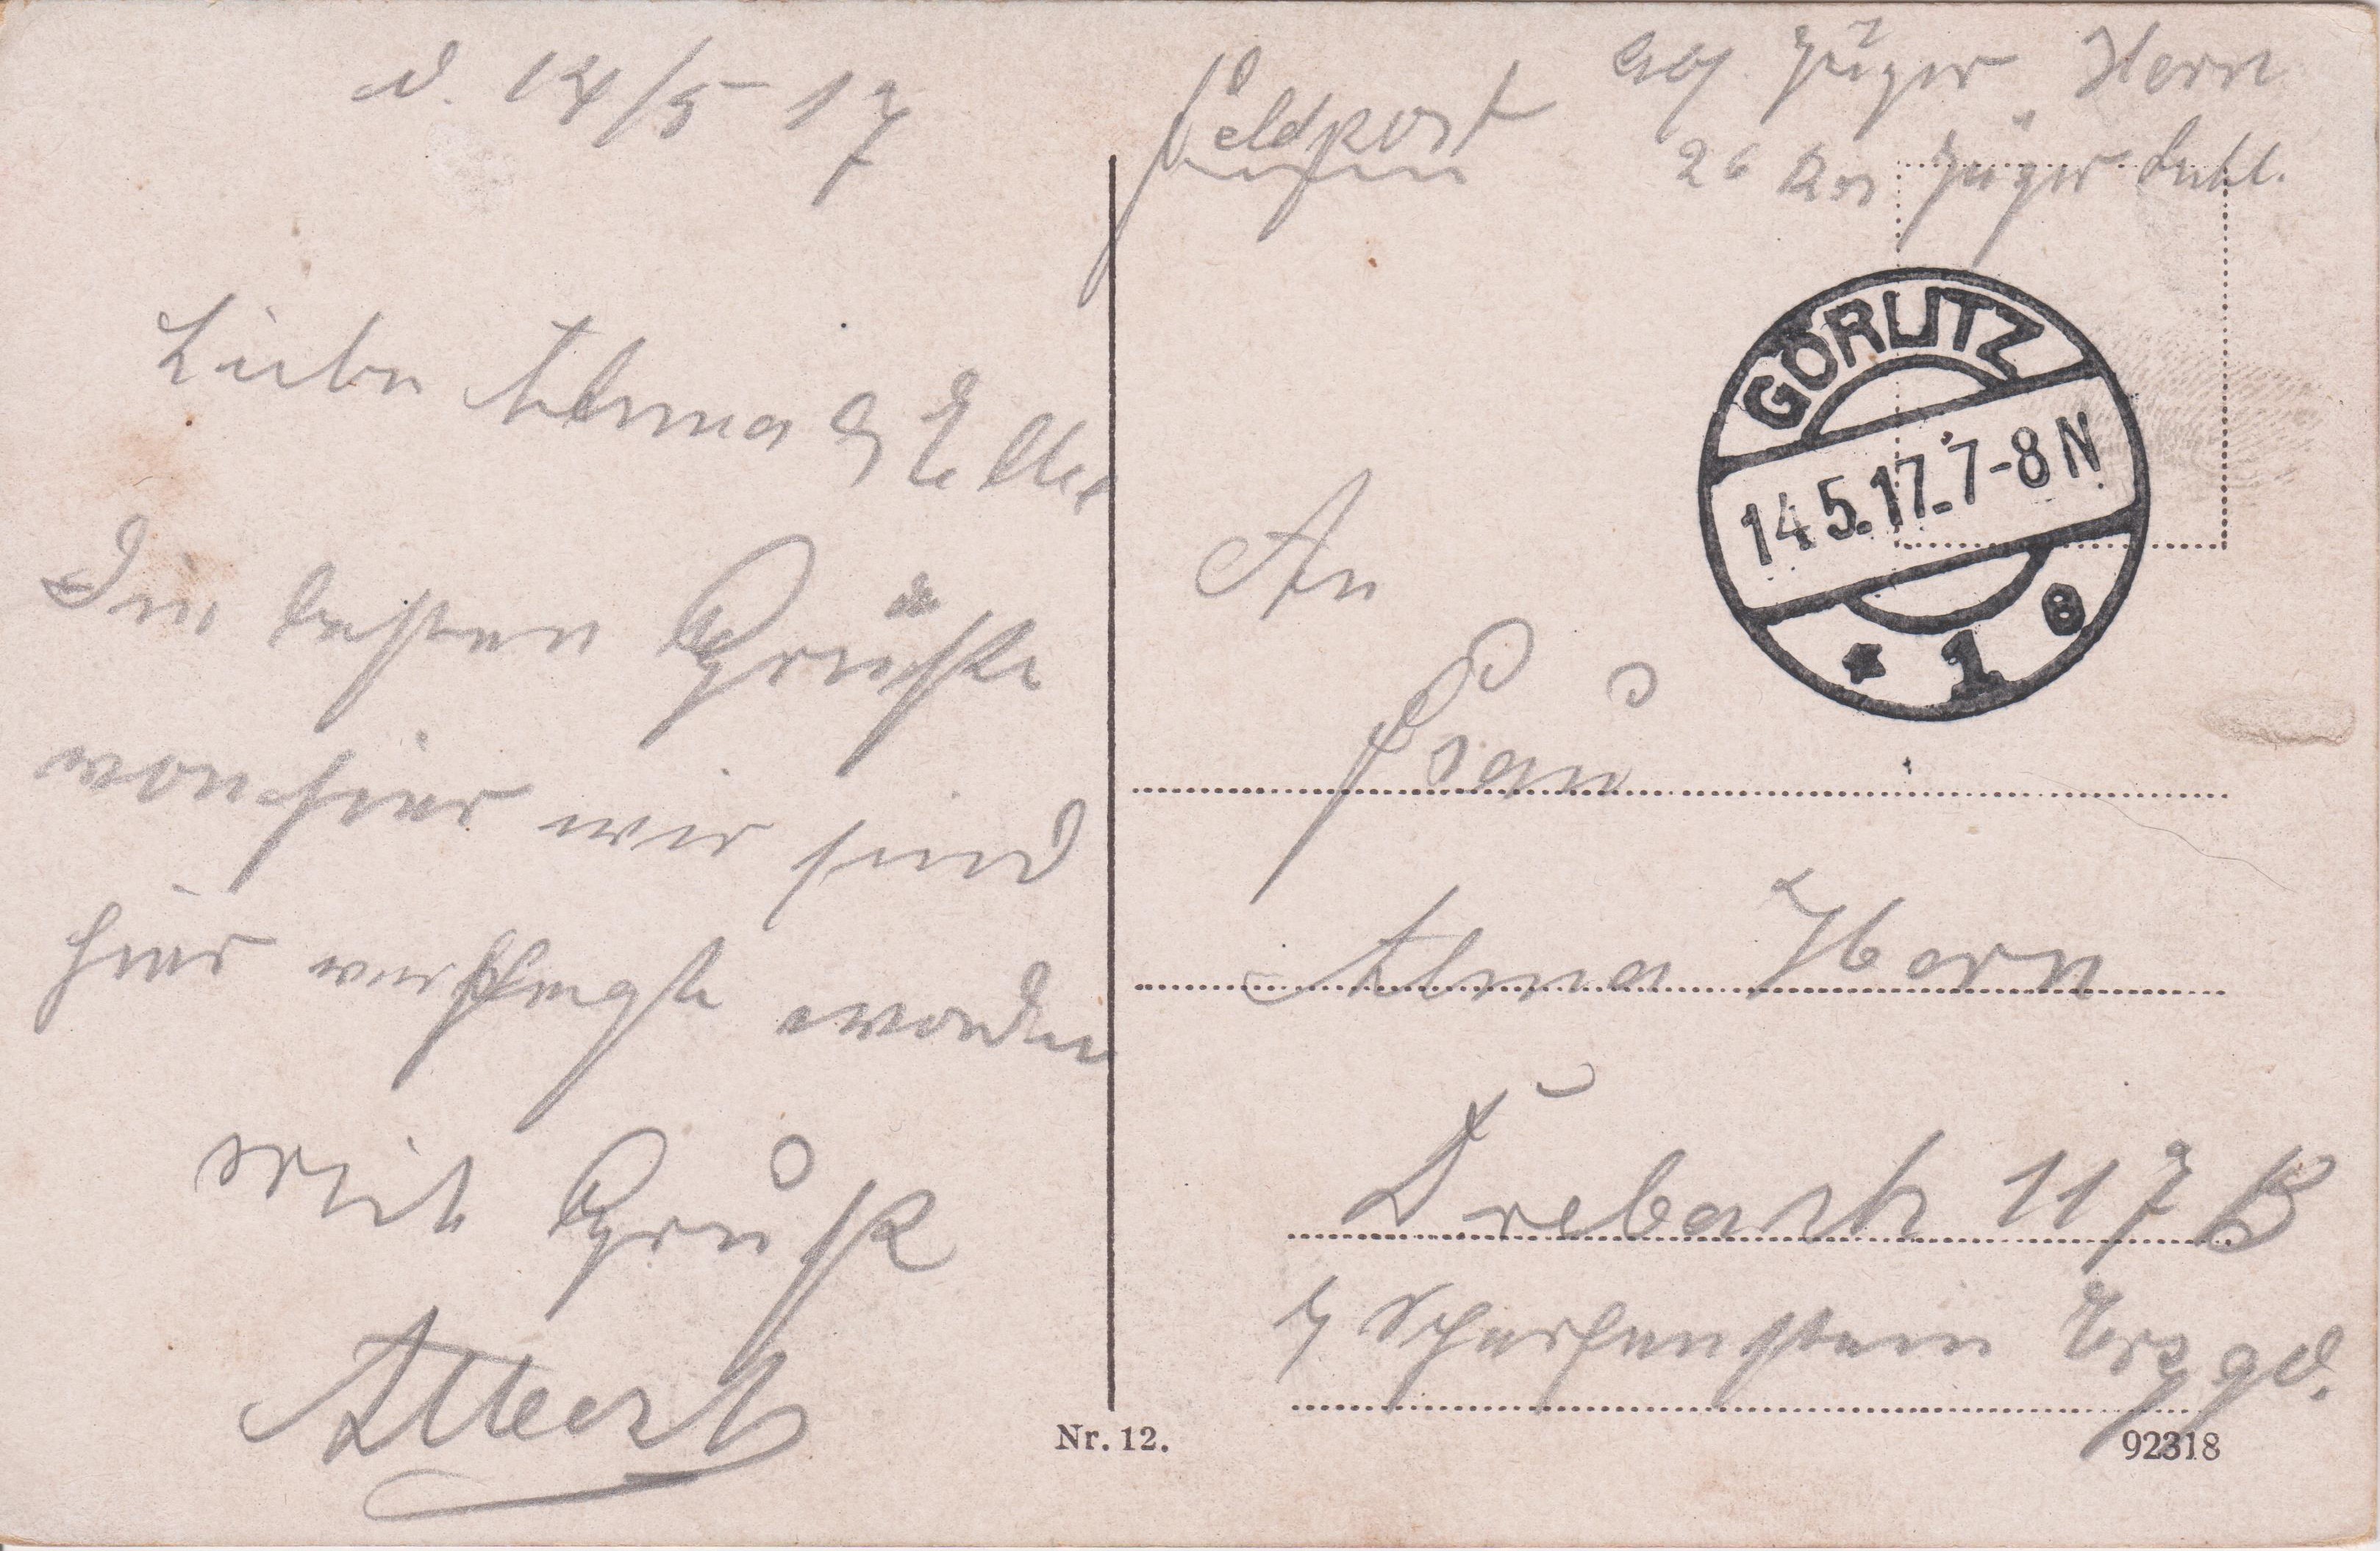 d. 14/5 17
Liebe Alma & Ella
Die besten Grüße
von hier wir sind
hier verpflegt worden
Mit Gruß
Albert
Feldpost
Abs. Jäger Horn
26 Res Jäger Batl.
GÖRLITZ
14.5.17. 7-8 N
* 1 e
An
Frau
Alma Horn
Drebach 117 B
b/ Scharfenstein Erzgeb.
Nr. 12.
92318